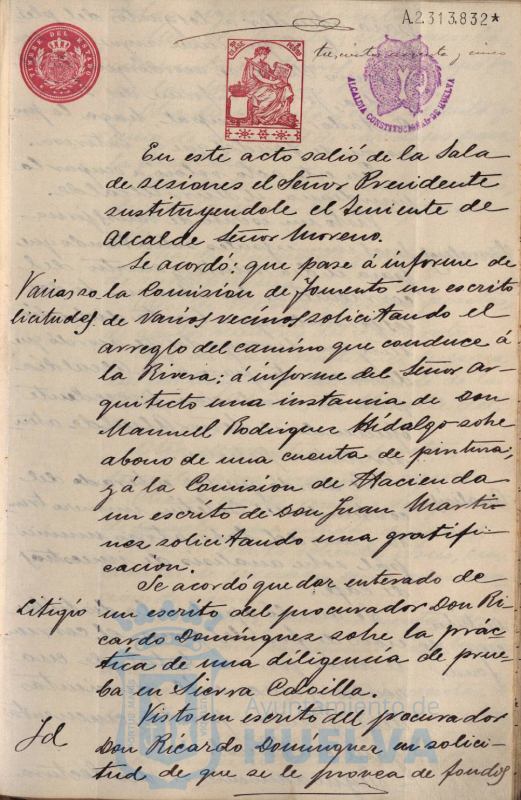 A.2.313.832*
TIMBRE DEL ESTADO
ALCALDIA CONSTITUCIONAL DE HUELVA
En este acto salió de la Sala
de sesiones el Señor Presidente
sustituyendole el Teniente de
Alcalde Señor Moreno.
Se acordó: que pase á informe de
Varias so
licitudes.
la Comision de Fomento un escrito
de varios vecinos solicitando el
arreglo del camino que conduce á
la Rivera; á informe del Señor Ar-
quitecto una instancia de Don
Manuell Rodriguez Hidalgo sobre
abono de una cuenta de pintura,
y á la Comision de Hacienda
un escrito de Don Juan Marti-
nez solicitando una gratifi-
cacion.
Se acordó quedar enterado de
Litigio
un escrito del procurador Don Ri-
cardo Domínguez sobre la prác-
tica de una diligencia de prue-
ba en Sierra Cabilla.
Visto un escrito del procurador
Id
Don Ricardo Domínguez en solici-
tud de que se le provea de fondos
Ayuntamiento de
HUELVA